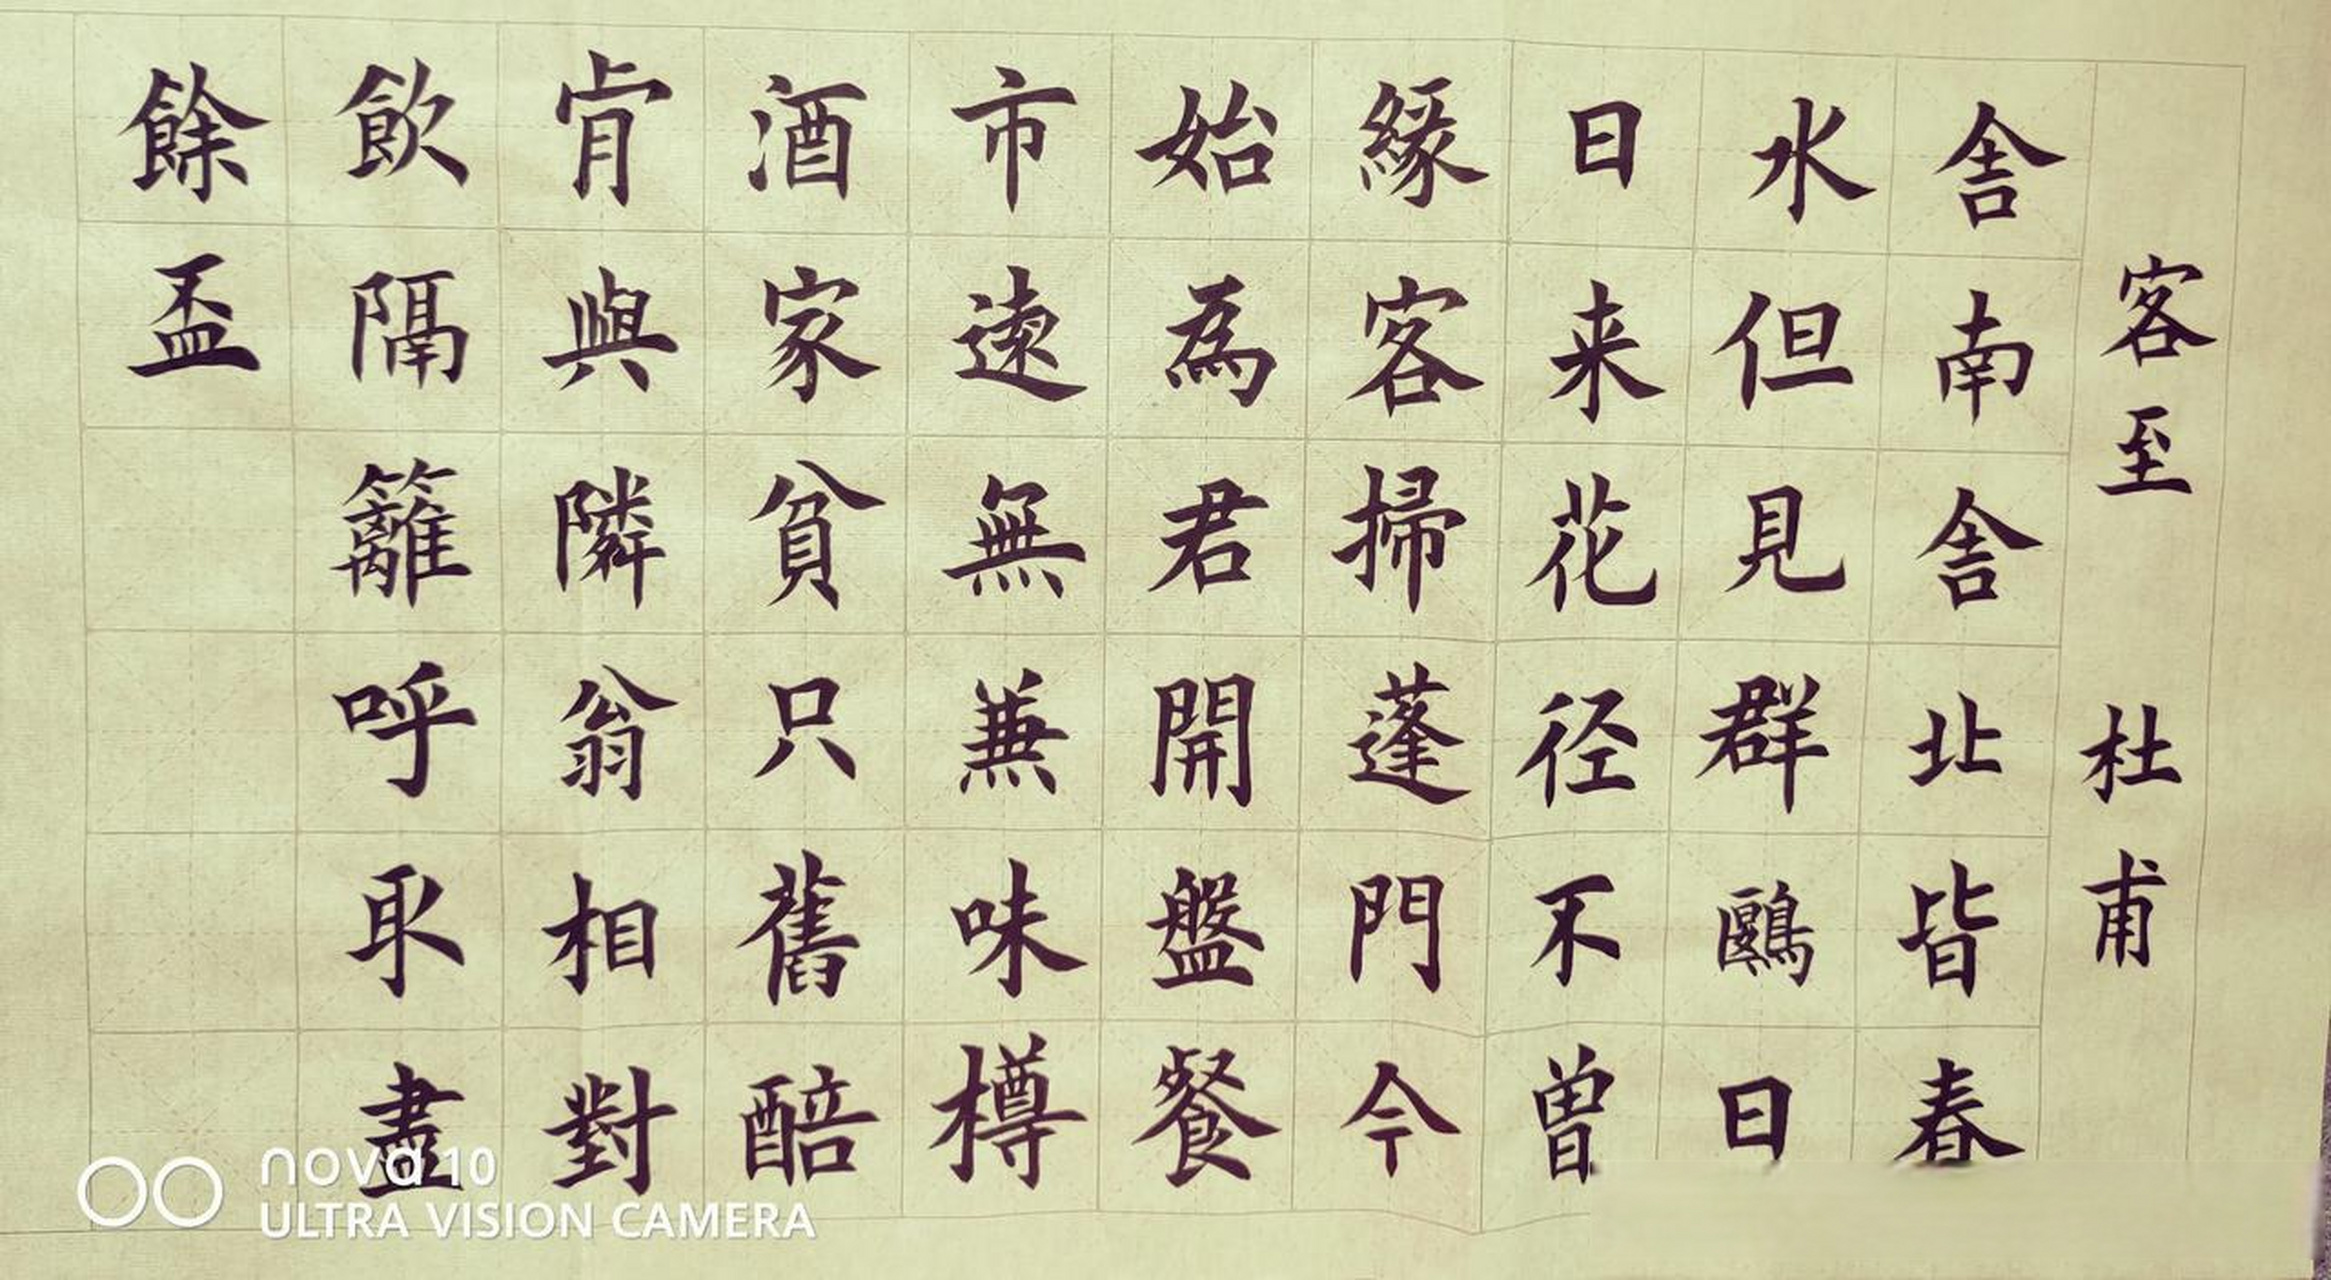 客至 杜甫
舎南舎北皆春
水但見群鷗日
日来花径不曾
緣客掃蓬門今
始為君開盤餐
市遠無兼味樽
酒家貧只舊醅
肯與隣翁相對
飲隔籬呼取盡
餘盃
nova 10
ULTRA VISION CAMERA